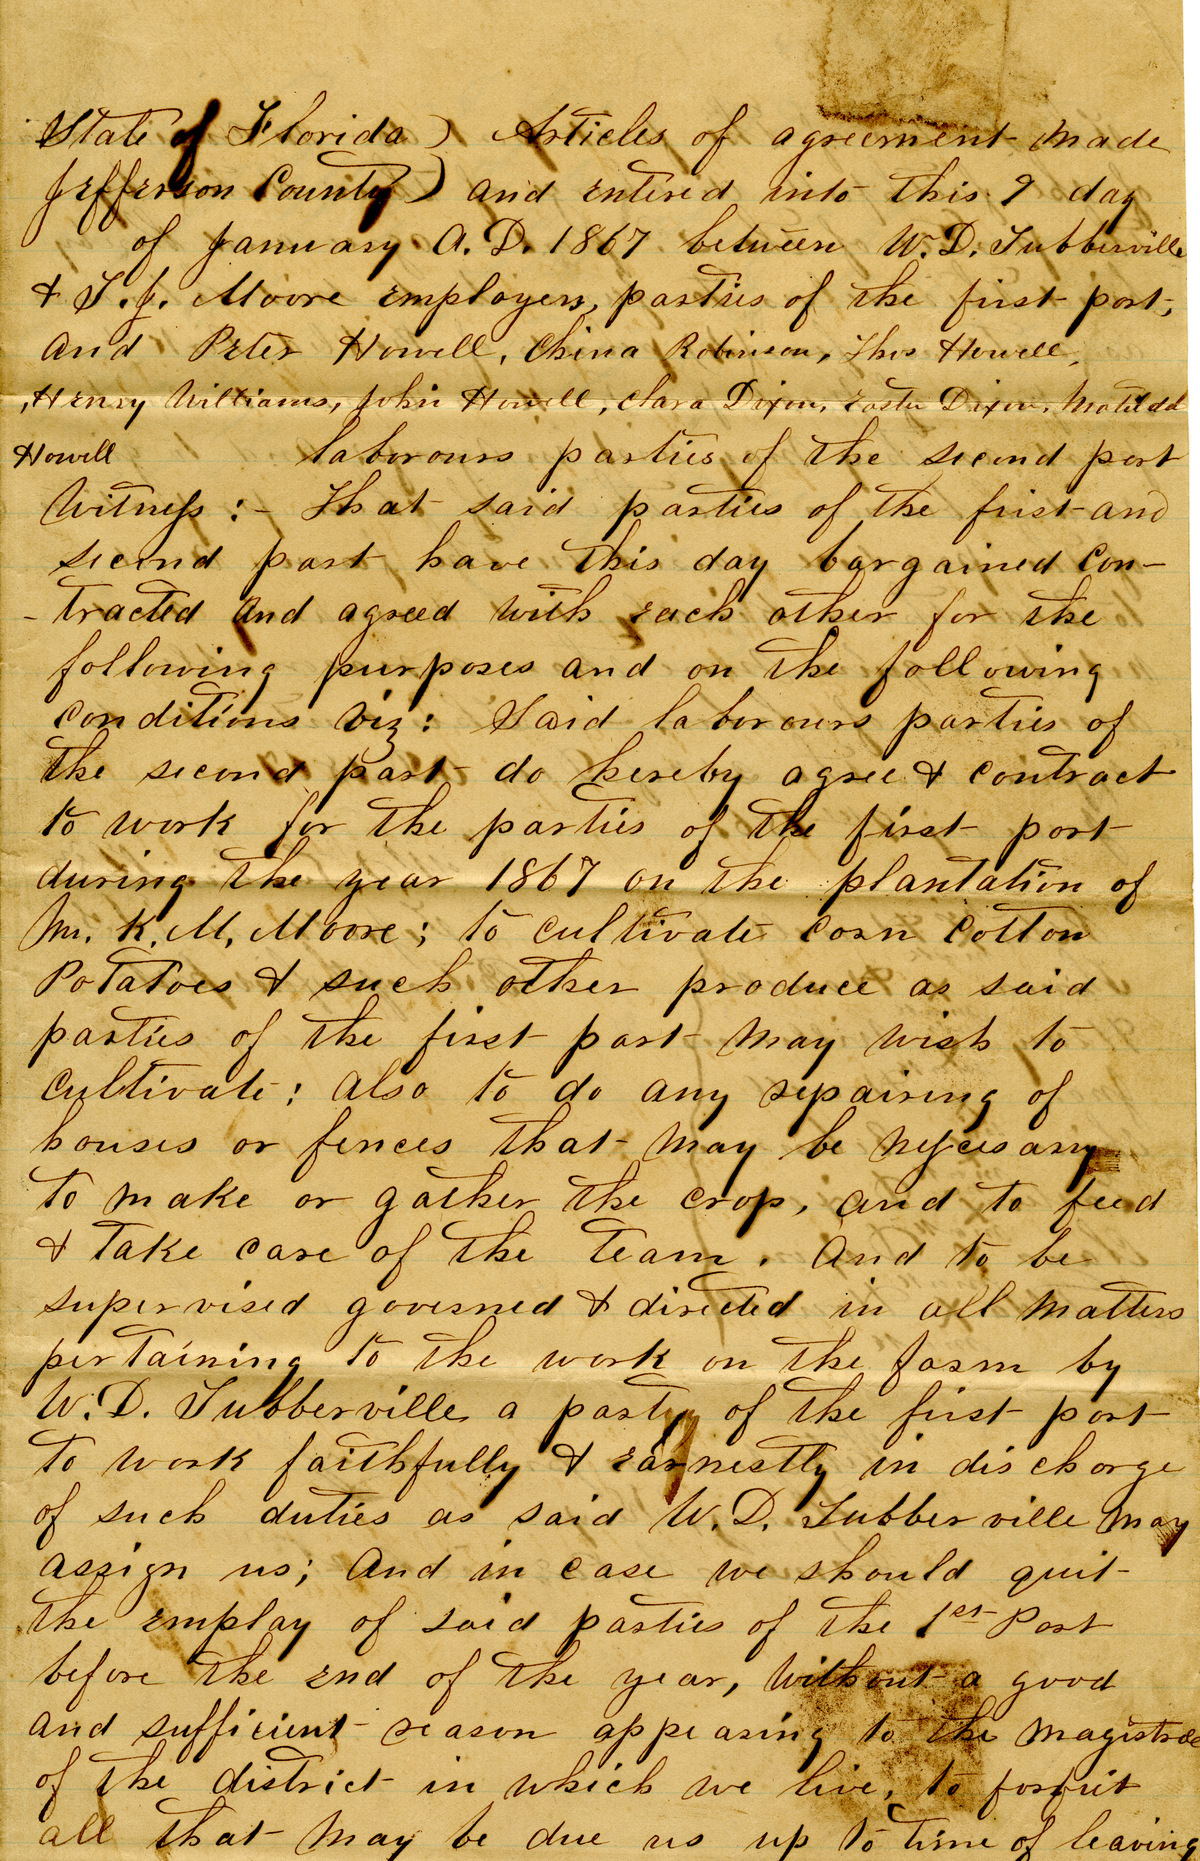 State of Florida ) Articles of agreement made
Jefferson County ) and entered into this 9 day
of January A.D. 1867 between W.D. Tubberville
& T.J. Moore employers, parties of the first part,
and Peter Howell, China Robinson, Thos Howell,
Henry Williams, John Howell, Clara Dixon, Easter Dixon, Matilda
Howell labourours parties of the second part
Witness :- That said parties of the first and
second part have this day bargained con-
-tracted and agreed with each other for the
following purposes and on the following
conditions viz: Said labourours parties of
the second part do hereby agree & contract
to work for the parties of the first part
during the year 1867 on the plantation of
Mr. K. M. Moore; to cultivate corn cotton
Potatoes & such other produce as said
parties of the first part may wish to
cultivate; also to do any repairing of
houses or fences that may be necessary
to make or gather the crop, and to feed
& take care of the team. And to be
supervised governed & directed in all matters
pertaining to the work on the farm by
W.D. Tubberville a party of the first part
to work faithfully & earnestly in discharge
of such duties as said W.D. Tubberville may
assign us; and in case we should quit
the employ of said parties of the 1st Part
before the end of the year, without a good
and sufficient reason appearing to the magistrate
of the district in which we live, to forfeit
all that may be due us up to time of leaving